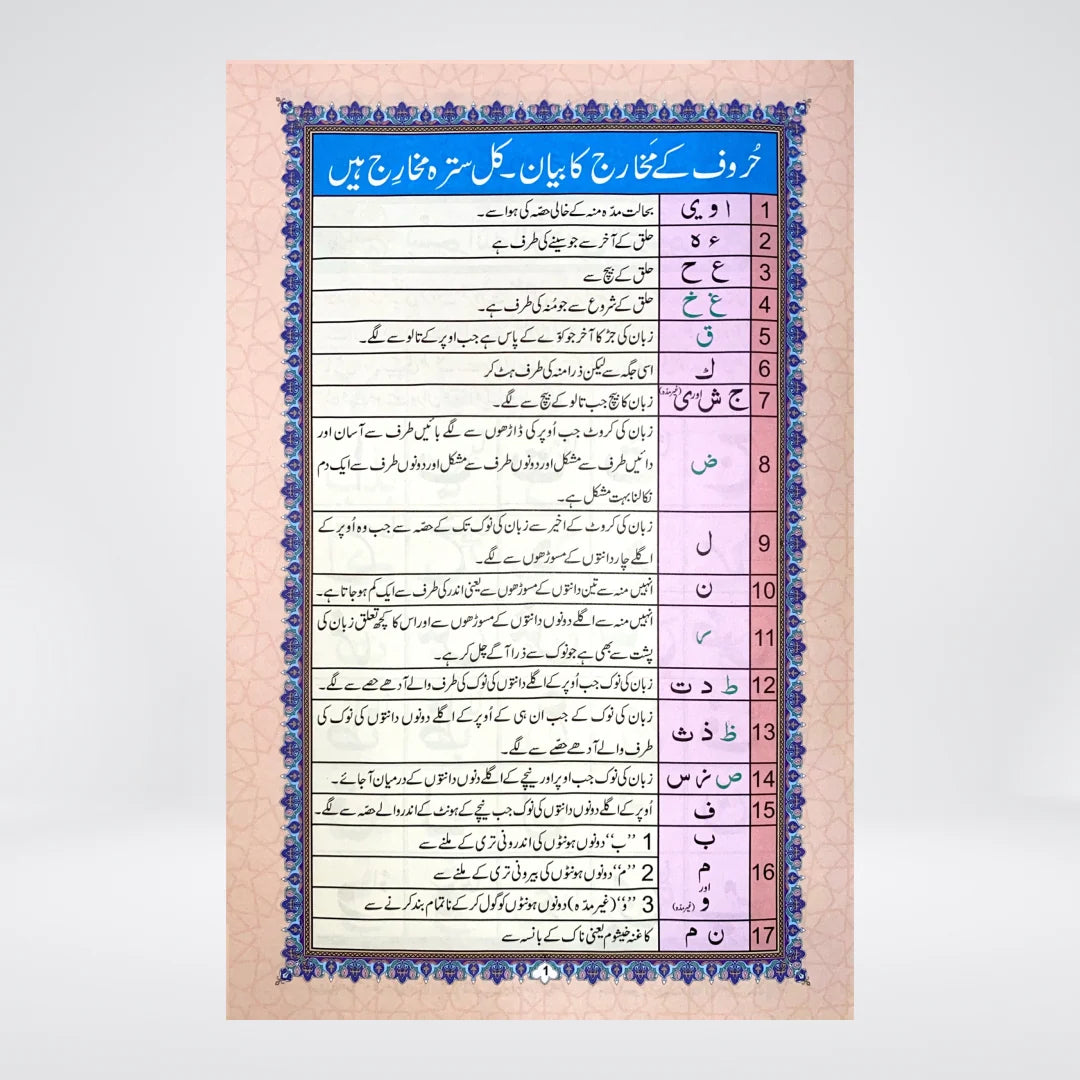 حُروف کے مَخارج کا بیان ۔ کل سترہ مخارِج ہیں
1 ا و ی بحالت مدّہ منہ کے خالی حصّہ کی ہوا سے۔
2 ء ہ حلق کے آخر سے جو سینے کی طرف ہے
3 ع ح حلق کے بیچ سے
4 غ خ حلق کے شروع سے جو مُنہ کی طرف ہے۔
5 ق زبان کی جڑ کا آخر جو کوّے کے پاس ہے جب اوپر کے تالو سے لگے۔
6 ك اسی جگہ سے لیکن ذرا منہ کی طرف ہٹ کر
7 ج ش اور ی (غیر مدّہ) زبان کا بیچ جب تالو کے بیچ سے لگے۔
8 ض زبان کی کروٹ جب اُوپر کی ڈاڑھوں سے لگے بائیں طرف سے آسان اور
دائیں طرف سے مشکل اور دونوں طرف سے مشکل اور دونوں طرف سے ایک دم
نکالنا بہت مشکل ہے۔
9 ل زبان کی کروٹ کے اخیر سے زبان کی نوک تک کے حصّہ سے جب وہ اُوپر کے
اگلے چار دانتوں کے مسوڑھوں سے لگے۔
10 ن انہیں منہ سے تین دانتوں کے مسوڑھوں سے یعنی اندر کی طرف سے ایک کم ہو جاتا ہے۔
11 ر انہیں منہ سے اگلے دونوں دانتوں کے مسوڑھوں سے اور اس کا کچھ تعلق زبان کی
پشت سے بھی ہے جو نوک سے ذرا آگے چل کر ہے۔
12 ط د ت زبان کی نوک جب اُوپر کے اگلے دانتوں کی نوک کی طرف والے آدھے حصے سے لگے۔
13 ظ ذ ث زبان کی نوک کے جب ان ہی کے اُوپر کے اگلے دونوں دانتوں کی نوک کی
طرف والے آدھے حصّے سے لگے۔
14 ص ز س زبان کی نوک جب اوپر اور نیچے کے اگلے دنوں دانتوں کے درمیان آ جائے۔
15 ف اُوپر کے اگلے دونوں دانتوں کی نوک جب نیچے کے ہونٹ کے اندر والے حصّہ سے لگے۔
16 ب 1 ”ب“ دونوں ہونٹوں کی اندرونی تری کے ملنے سے
م اور 2 ”م“ دونوں ہونٹوں کی بیرونی تری کے ملنے سے
و (غیر مدّہ) 3 ”وْ“ (غیر مدّہ) دونوں ہونٹوں کو گول کر کے ناتمام بند کرنے سے
17 ن م کا غنہ خیشوم یعنی ناک کے بانسہ سے
1